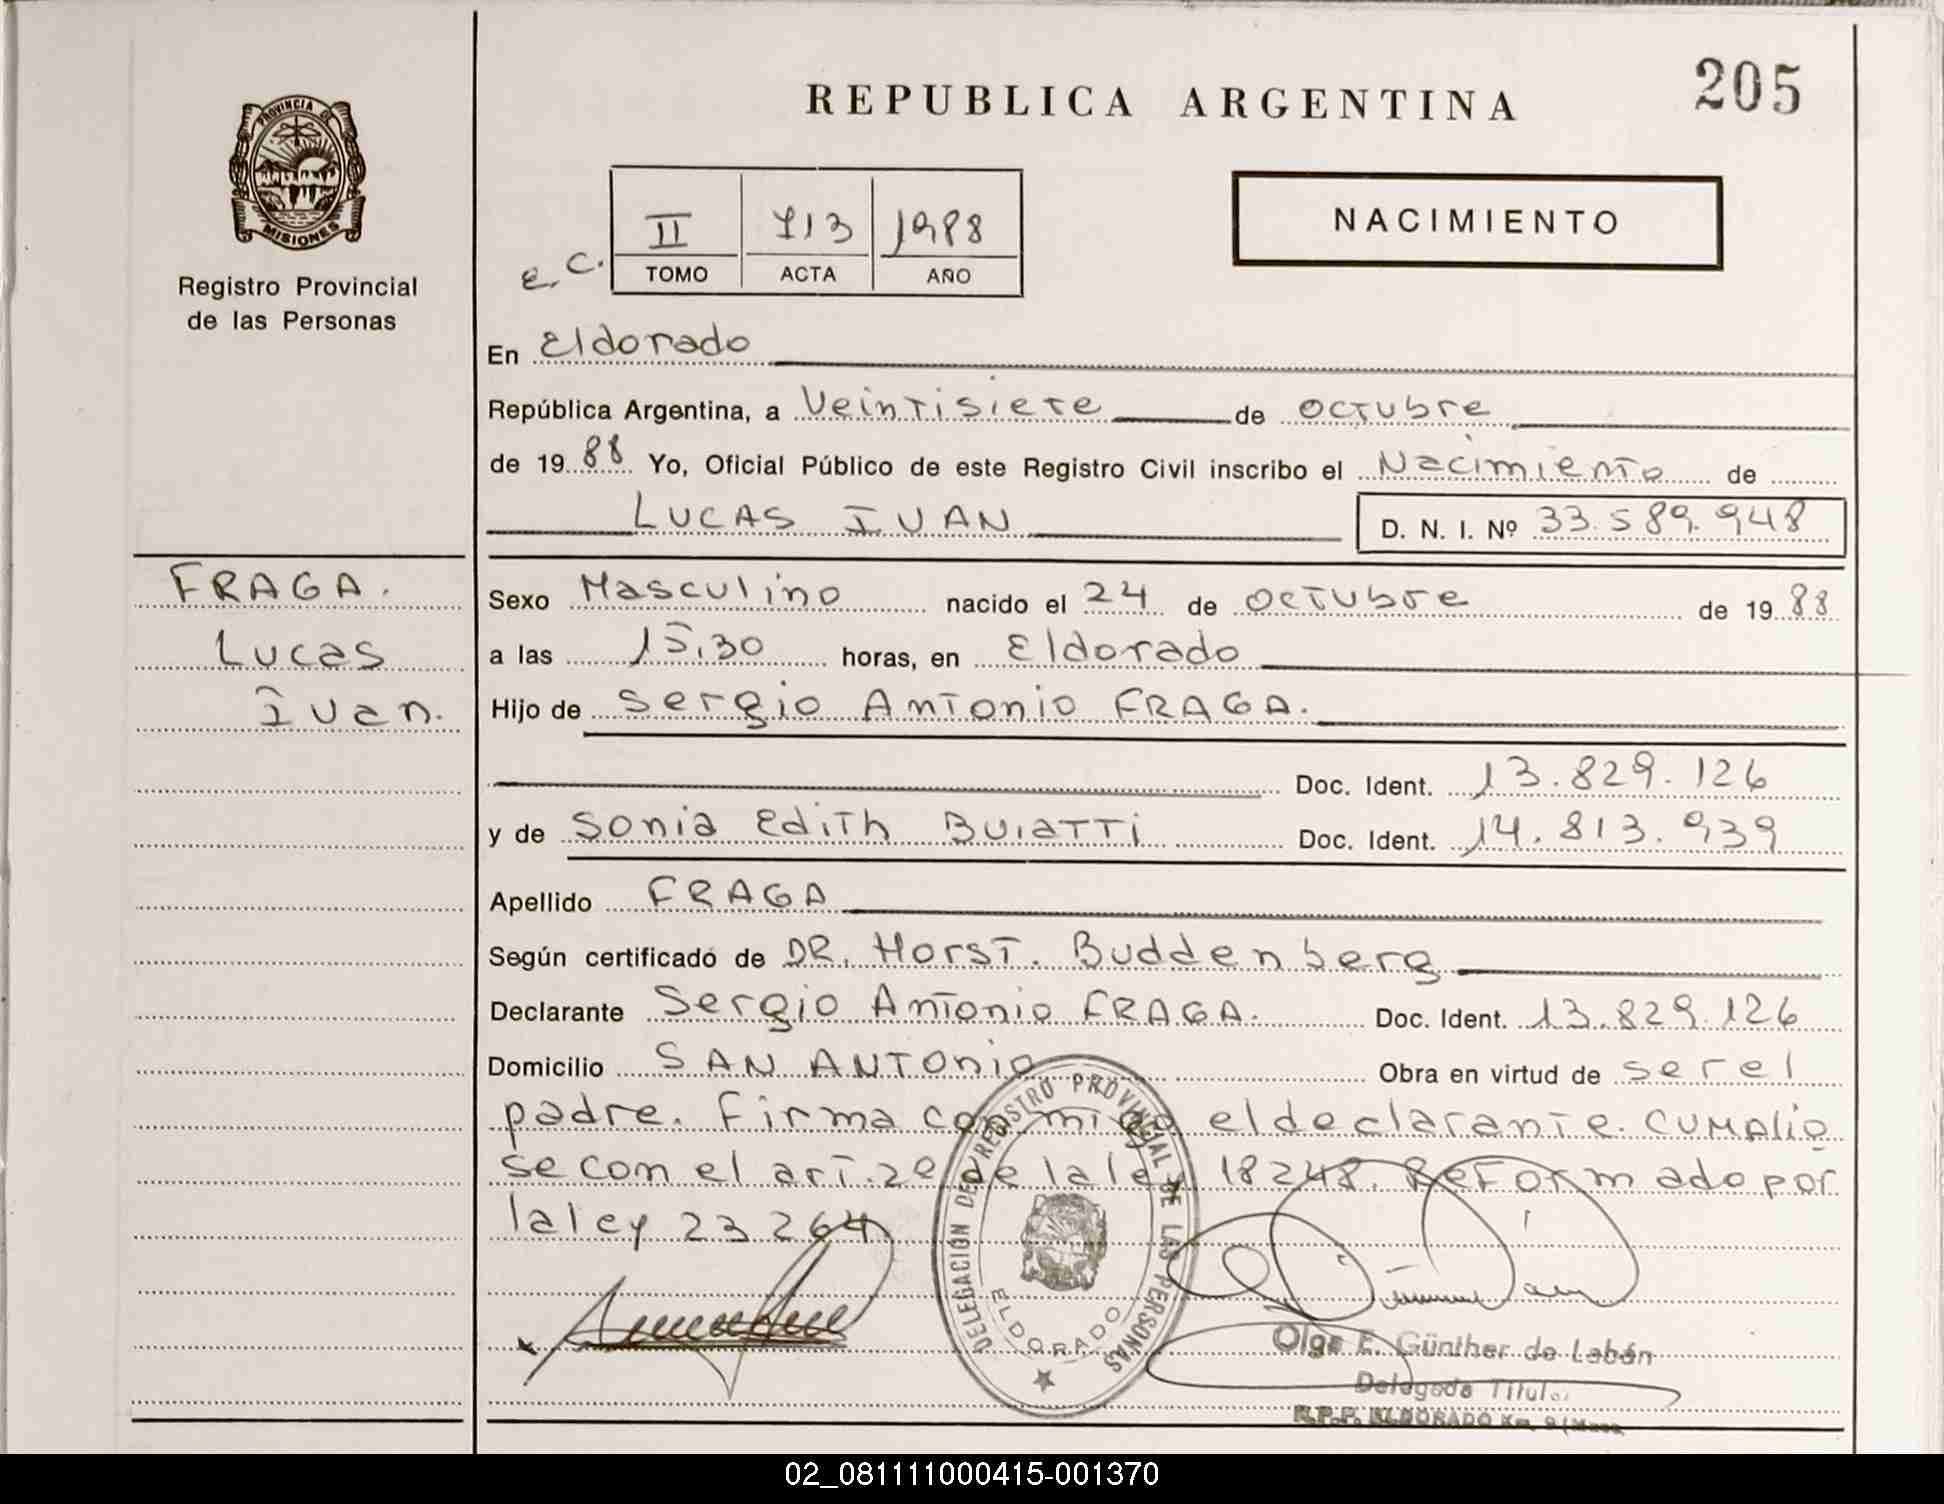 REPUBLICA ARGENTINA
205
PROVINCIA DE
MISIONES
Registro Provincial
de las Personas
e. c.
II 713 1988
TOMO ACTA AÑO
NACIMIENTO
En Eldorado
República Argentina, a Veintisiete de octubre
de 1988 Yo, Oficial Público de este Registro Civil inscribo el Nacimiento de
LUCAS IVAN D. N. I. Nº 33.589.948
FRAGA.
Lucas
Ivan.
Sexo Masculino nacido el 24 de octubre de 1988
a las 15,30 horas, en Eldorado
Hijo de Sergio Antonio FRAGA.
Doc. Ident. 13.829.126
y de Sonia Edith BUIATTI Doc. Ident. 14.813.939
Apellido FRAGA
Según certificado de DR. Horst. Buddenberg
Declarante Sergio Antonio FRAGA. Doc. Ident. 13.829.126
Domicilio SAN ANTONIO Obra en virtud de ser el
padre. Firma conmigo el declarante. CUMPLIO
se con el art. 2º de la ley 18248. Reformado por
la ley 23264
DELEGACIÓN DEL REGISTRO PROVINCIAL DE LAS PERSONAS
ELDORADO
Olga E. Günther de Labán
Delegada Titular
R.P.P. ELDORADO Km. 9
02_081111000415-001370